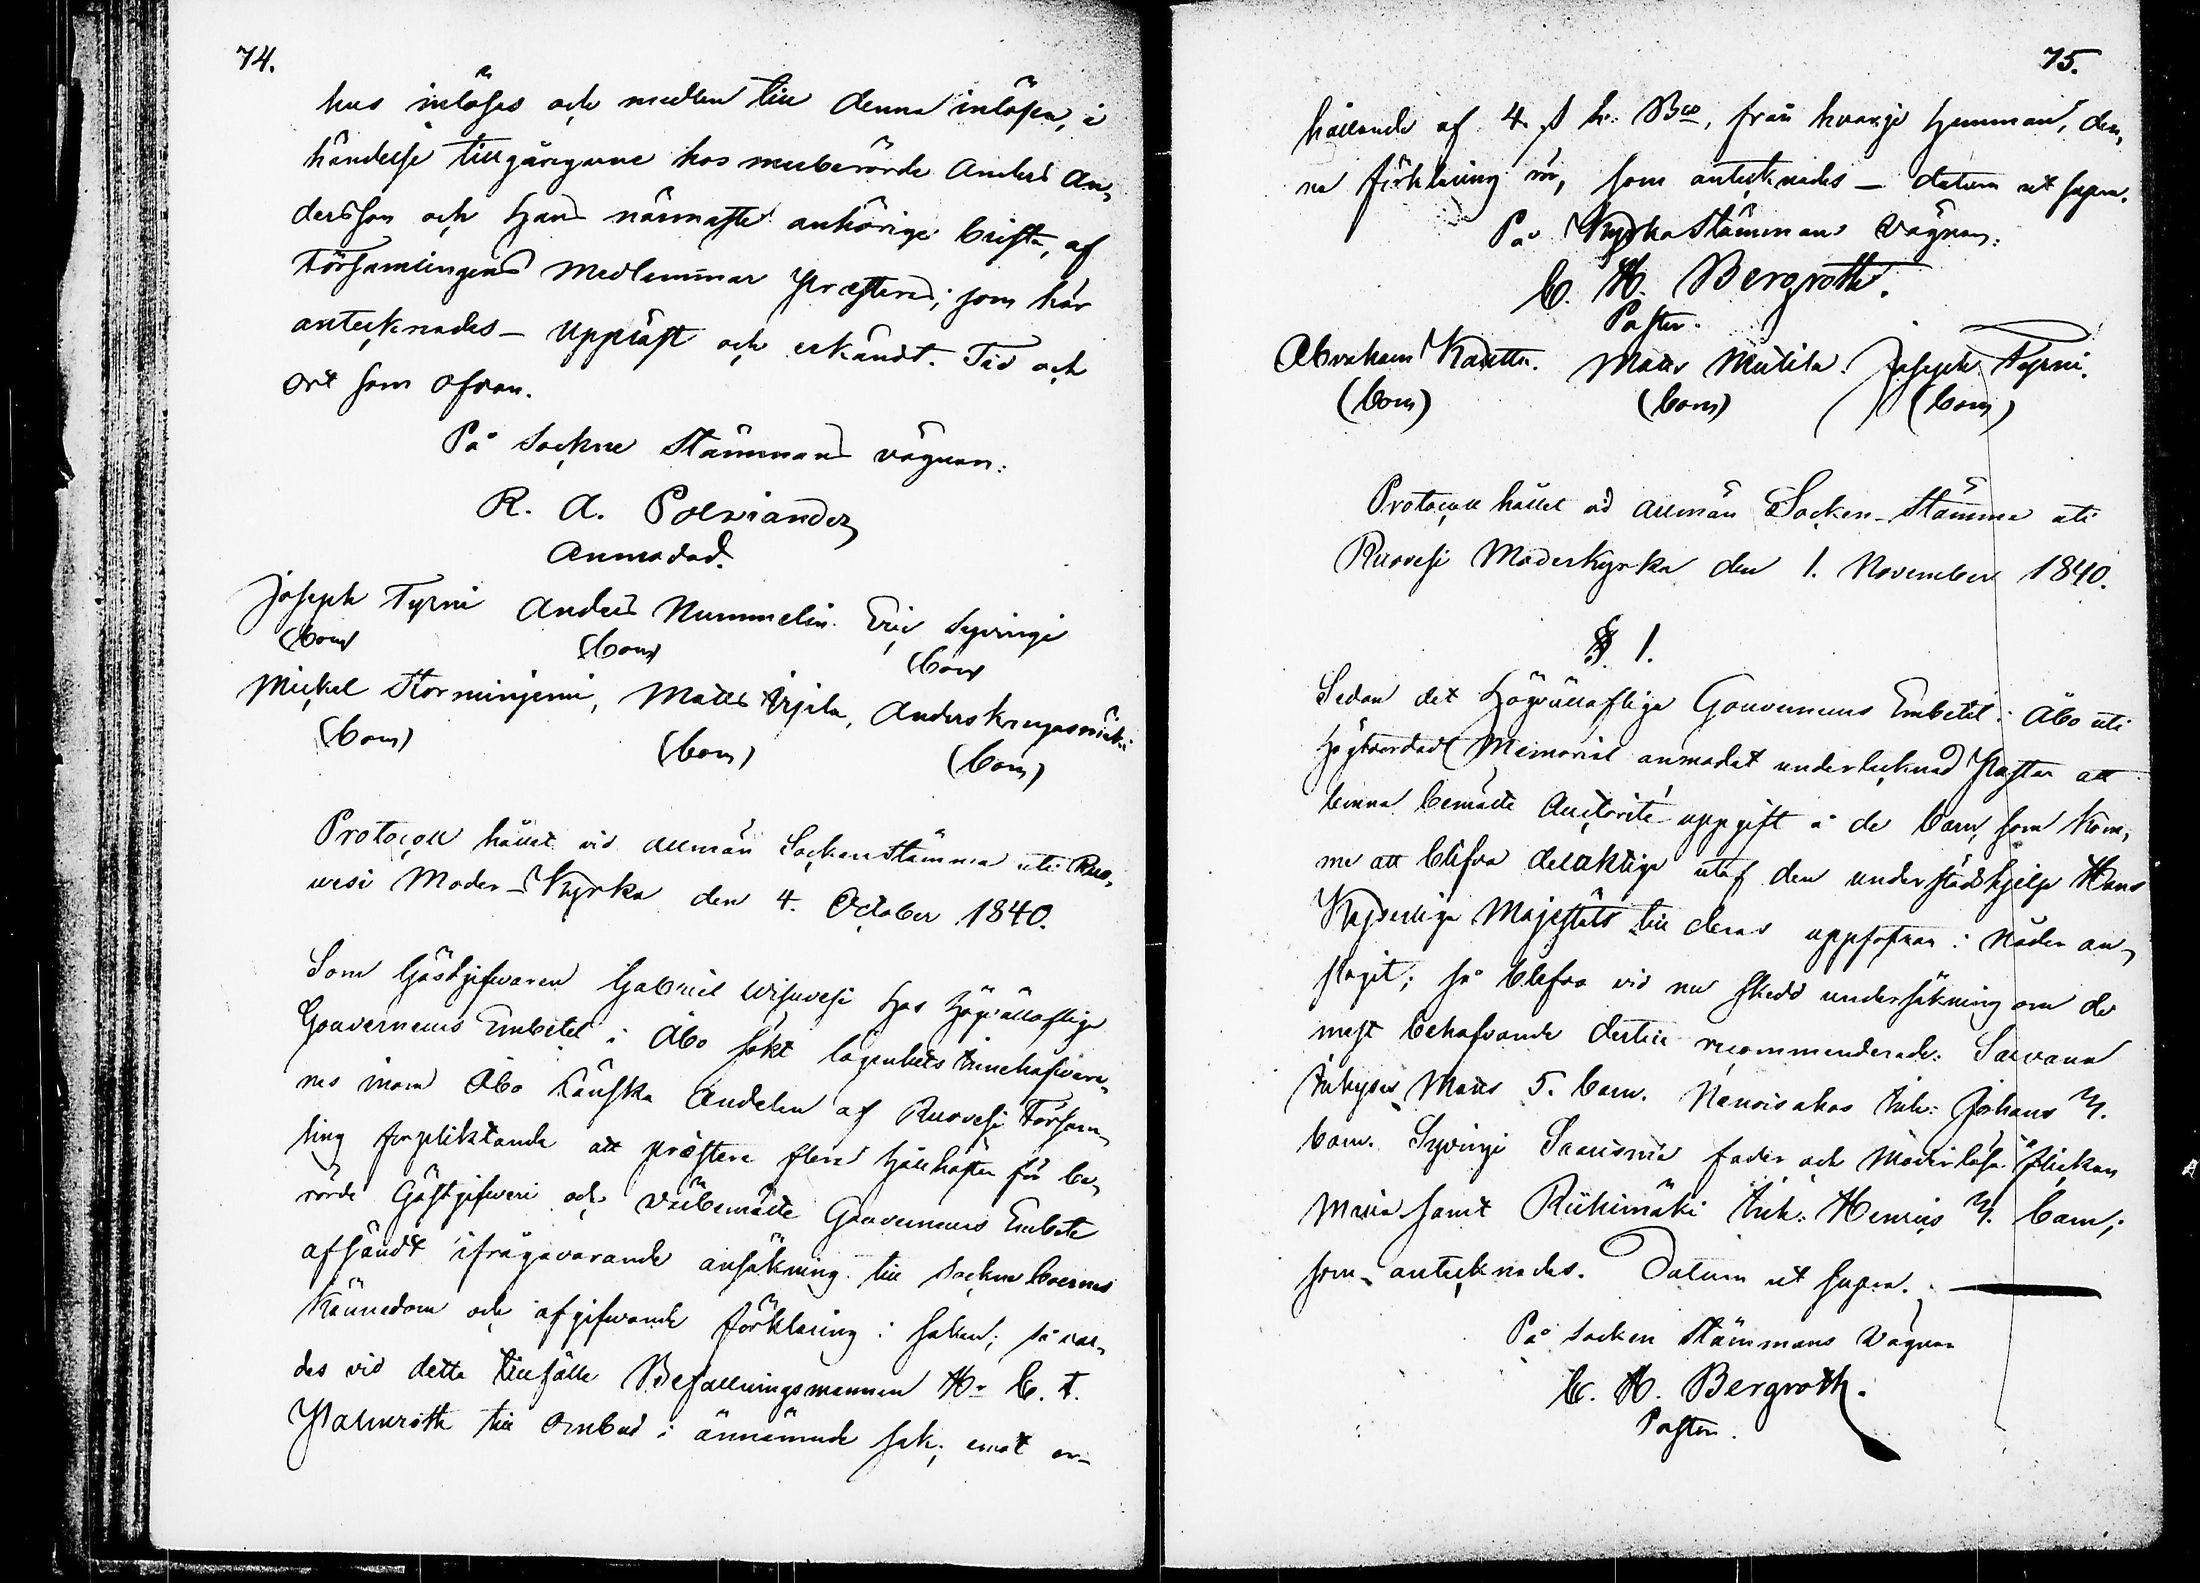 74.
hus inlöses och medlen till denna inlösen, i
händelse tillgångarne hos meeberörde Anders An„
dersson och Hans närmaste anhörige brista, af
Församlingens Medlemmar præsteras; som här
antecknades – Uppläst och erkändt. Tid och
ort som ofvan.
På Sockne Stämmans vägnan:
R. A. Polviander
Anmodad.
Joseph Tyrni Anders Nummelin Eric Syvingi
(bom) (bom) (bom)
Mickel Storminjemi, Matts Irjala, Anders
(bom) (bom) (bom)
Protocoll hållit vid allmän Sockenstämma uti Ruo„
vesi Moder-Kyrka den 4. October 1840.
Som Gästgifwaren Gabriel Wisuvesi hos Högvällofliga
Gouverneurs Embetet i Åbo sökt lägenhets innehafvare„
nes inom Åbo Länska Andelen af Ruovesi Försam„
ling förpliktande att præstera flera hållhästar för be„
rörde Gästgifveri och Välbemälte Gouverneurs Embete
afsändt ifrågavarande ansökning till Sockneboernes
Kännedom och afgifwande förklaring i saken; så
des vid detta tillfälle Befallningsmannen Hr C. F.
Palmroth till Ombud i ännämnde sak, emot er-
75.
hållande af 4. s. k. Bco, från hvarje hemman, den„
na förklaring in, som antecknades – datum ut supra.
På Kyrko Stämmans Vägnan:
C. H. Bergroth.
Pastor.
Abraham Kautta. Matts Mutila. Joseph Tyrni.
(bom) (bom) (bom)
Protocoll hållit vid allmän Socken-Stämma uti
Ruovesi Moderkyrka den 1. November 1840.
§. 1.
Sedan det Högvällofliga Gouverneurs Embetet i Åbo uti
Högtvördadt Memorial anmodat undertecknad Pastor att
lemna bemälte Auctorité uppgift å de barn, som kom„
me att blifva delaktige utaf den understödshjelp Hans
Kejserliga Majestäts till deras uppfostran i Nåder an„
slagit; så blefvo vid nu skedd undersökning om de
mest behöfvande dertill recommenderade: Sarvana
Inhyses Matts 5. barn. Nenoisakas Inh: Johans 3.
barn. Syvingi Srausmä fader och Moderlösa flickan
Maria samt Riihimäki Inh: Henrics 3. barn;
som antecknades. Datum ut supra.
På Socken Stämmans Vägnar
C. H. Bergroth.
Pastor.